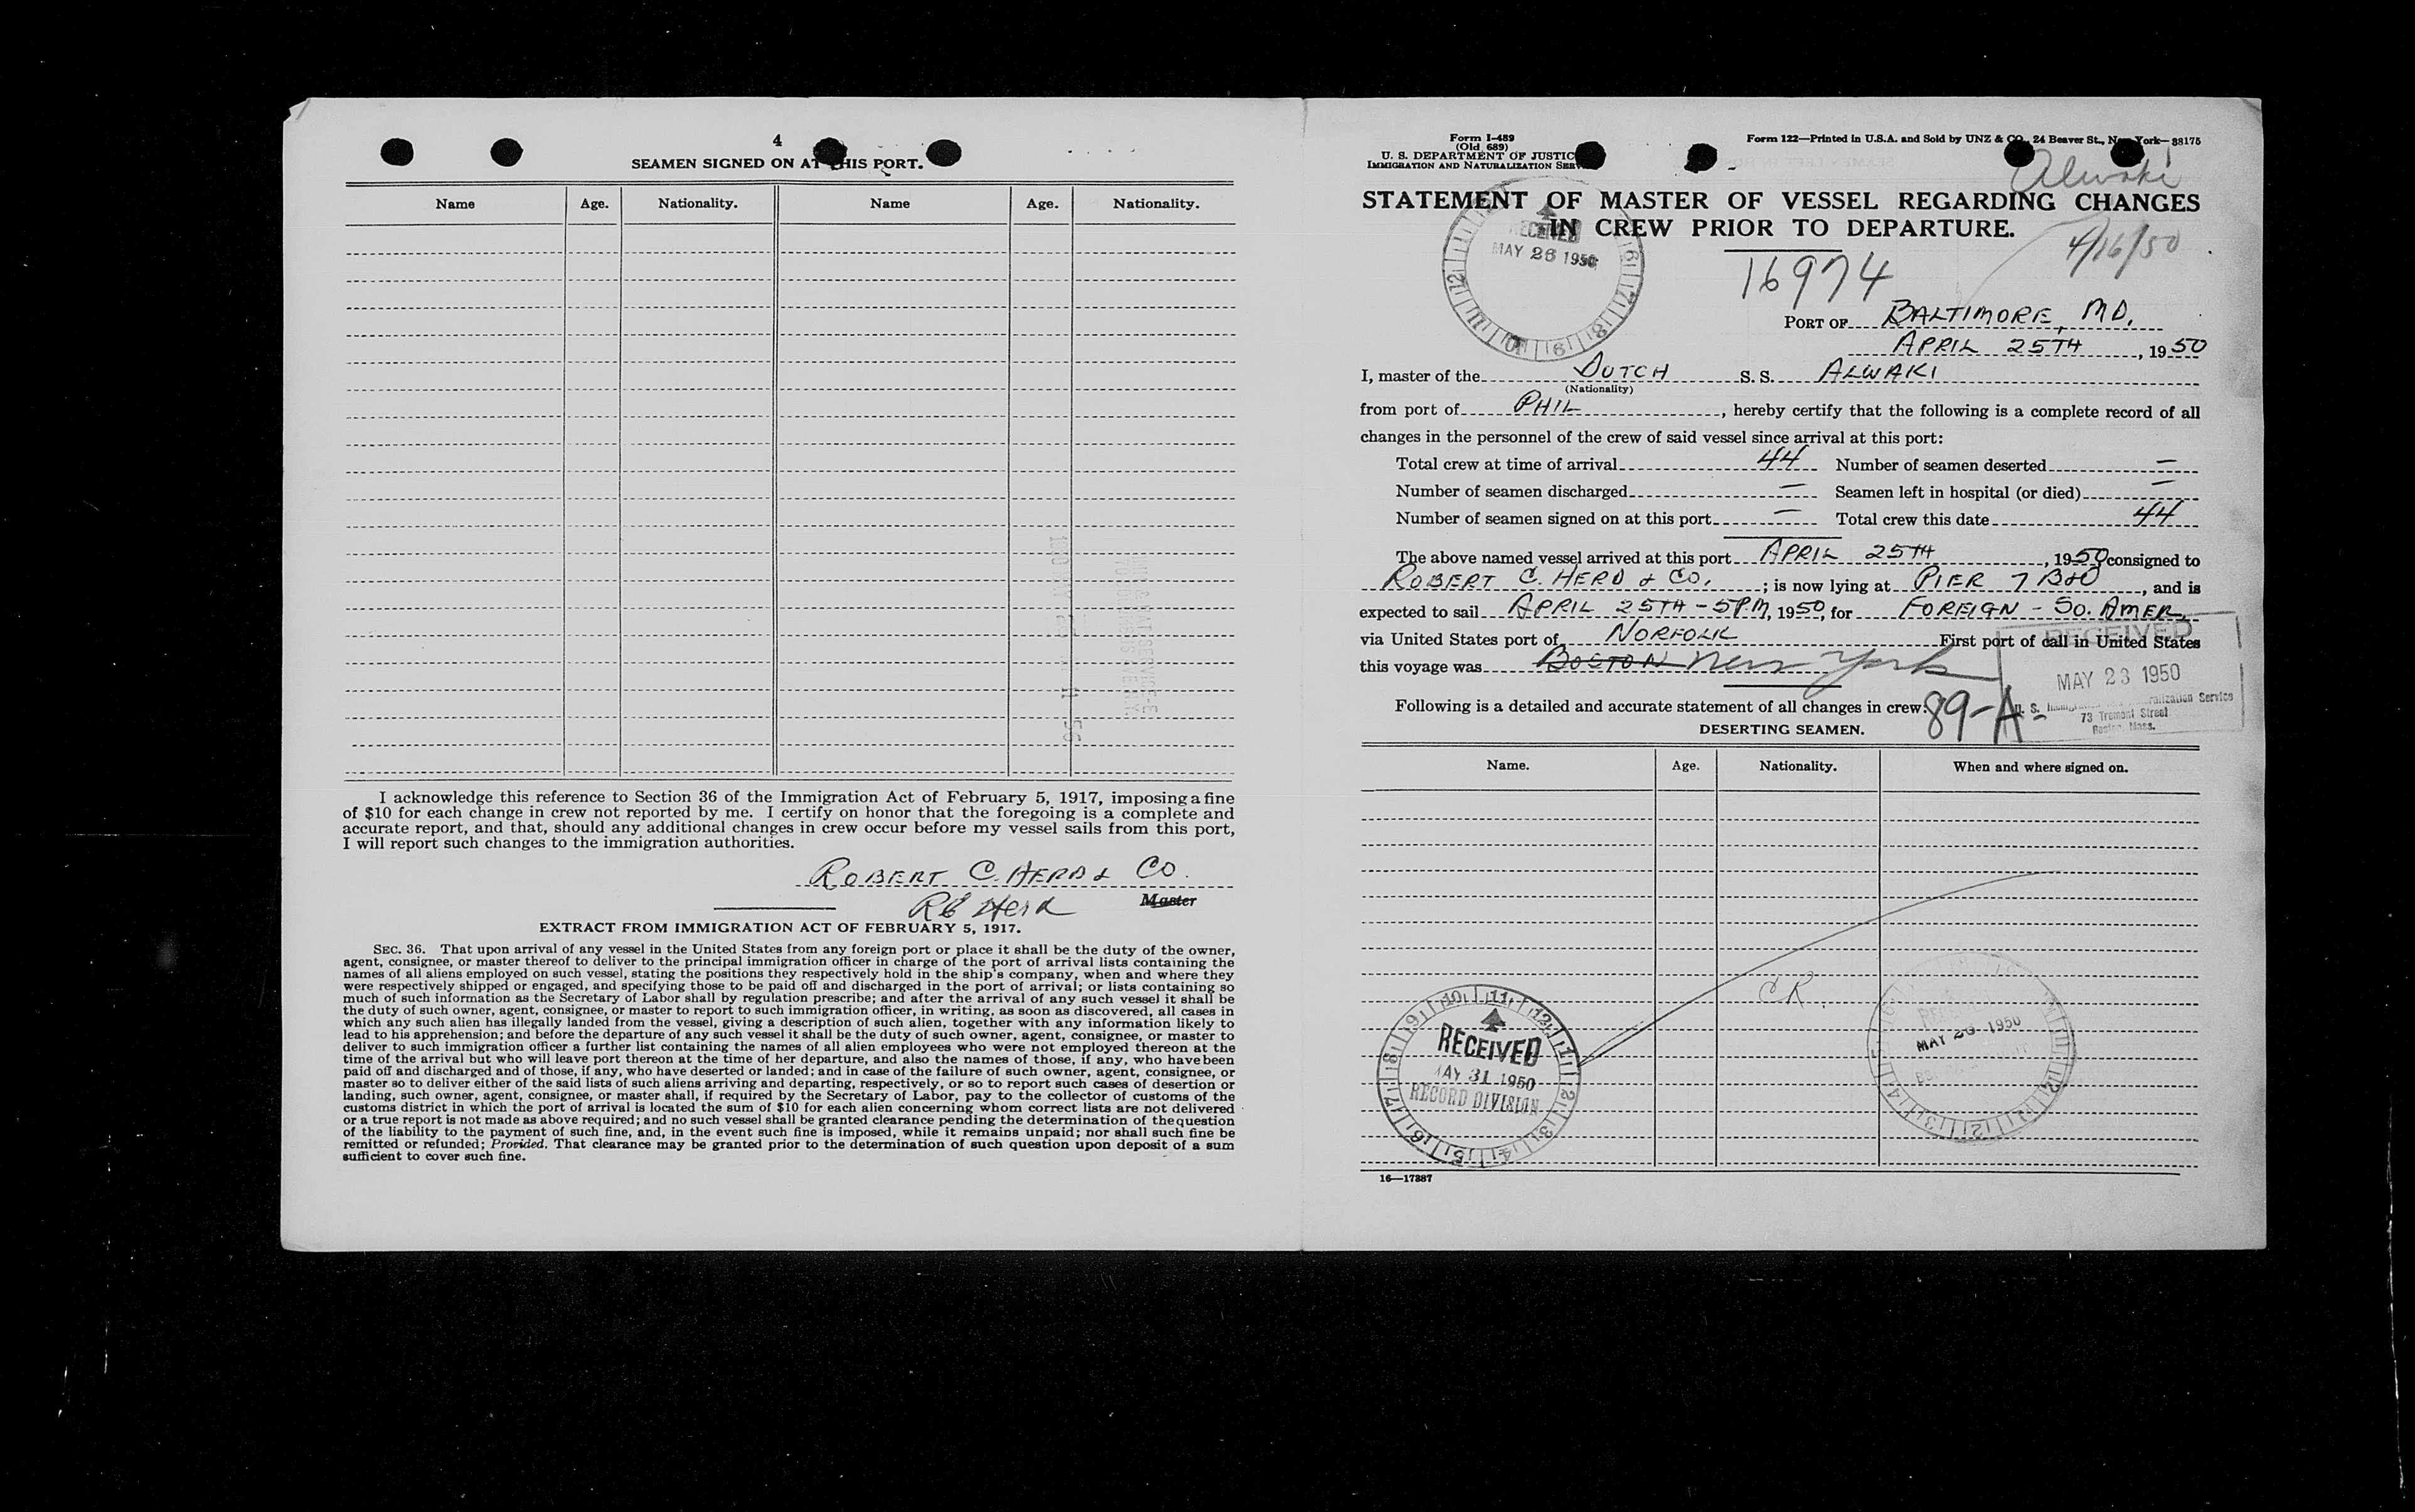 4
SEAMEN SIGNED ON AT THIS PORT.
Name Age. Nationality. Name Age. Nationality.
I acknowledge this reference to Section 36 of the Immigration Act of February 5, 1917, imposing a fine
of $10 for each change in crew not reported by me. I certify on honor that the foregoing is a complete and
accurate report, and that, should any additional changes in crew occur before my vessel sails from this port,
I will report such changes to the immigration authorities.
ROBERT C. HERD & CO.
RC Herd Master
EXTRACT FROM IMMIGRATION ACT OF FEBRUARY 5, 1917.
SEC. 36. That upon arrival of any vessel in the United States from any foreign port or place it shall be the duty of the owner,
agent, consignee, or master thereof to deliver to the principal immigration officer in charge of the port of arrival lists containing the
names of all aliens employed on such vessel, stating the positions they respectively hold in the ship's company, when and where they
were respectively shipped or engaged, and specifying those to be paid off and discharged in the port of arrival; or lists containing so
much of such information as the Secretary of Labor shall by regulation prescribe; and after the arrival of any such vessel it shall be
the duty of such owner, agent, consignee, or master to report to such immigration officer, in writing, as soon as discovered, all cases in
which any such alien has illegally landed from the vessel, giving a description of such alien, together with any information likely to
lead to his apprehension; and before the departure of any such vessel it shall be the duty of such owner, agent, consignee, or master to
deliver to such immigration officer a further list containing the names of all alien employees who were not employed thereon at the
time of the arrival but who will leave port thereon at the time of her departure, and also the names of those, if any, who have been
paid off and discharged and of those, if any, who have deserted or landed; and in case of the failure of such owner, agent, consignee, or
master so to deliver either of the said lists of such aliens arriving and departing, respectively, or so to report such cases of desertion or
landing, such owner, agent, consignee, or master shall, if required by the Secretary of Labor, pay to the collector of customs of the
customs district in which the port of arrival is located the sum of $10 for each alien concerning whom correct lists are not delivered
or a true report is not made as above required; and no such vessel shall be granted clearance pending the determination of the question
of the liability to the payment of such fine, and, in the event such fine is imposed, while it remains unpaid; nor shall such fine be
remitted or refunded; Provided. That clearance may be granted prior to the determination of such question upon deposit of a sum
sufficient to cover such fine.
Form I-489
(Old 689)
U. S. DEPARTMENT OF JUSTIC
IMMIGRATION AND NATURALIZATION SER
Form 122—Printed in U.S.A. and Sold by UNZ & CO., 24 Beaver St., New York—38175
Alwaki
STATEMENT OF MASTER OF VESSEL REGARDING CHANGES
IN CREW PRIOR TO DEPARTURE.
RECEIVED
MAY 26 1950
4/16/50
16974
PORT OF BALTIMORE, MD.
APRIL 25TH, 1950
I, master of the DUTCH S. S. ALWAKI
(Nationality)
from port of PHIL, hereby certify that the following is a complete record of all
changes in the personnel of the crew of said vessel since arrival at this port:
Total crew at time of arrival 44 Number of seamen deserted —
Number of seamen discharged — Seamen left in hospital (or died) —
Number of seamen signed on at this port — Total crew this date 44
The above named vessel arrived at this port APRIL 25TH, 1950 consigned to
ROBERT C. HERD & CO.; is now lying at PIER 7 B&O, and is
expected to sail APRIL 25TH - 5 P.M, 1950, for FOREIGN - SO. AMER.
via United States port of NORFOLK First port of call in United States
this voyage was BOSTON New York
RECEIVED
MAY 23 1950
U. S. Immigration and Naturalization Service
73 Tremont Street
Boston, Mass.
Following is a detailed and accurate statement of all changes in crew: 89-A
DESERTING SEAMEN.
Name. Age. Nationality. When and where signed on.
C.R.
RECEIVED
MAY 31 1950
RECORD DIVISION
MAY 26 1950
16—17387